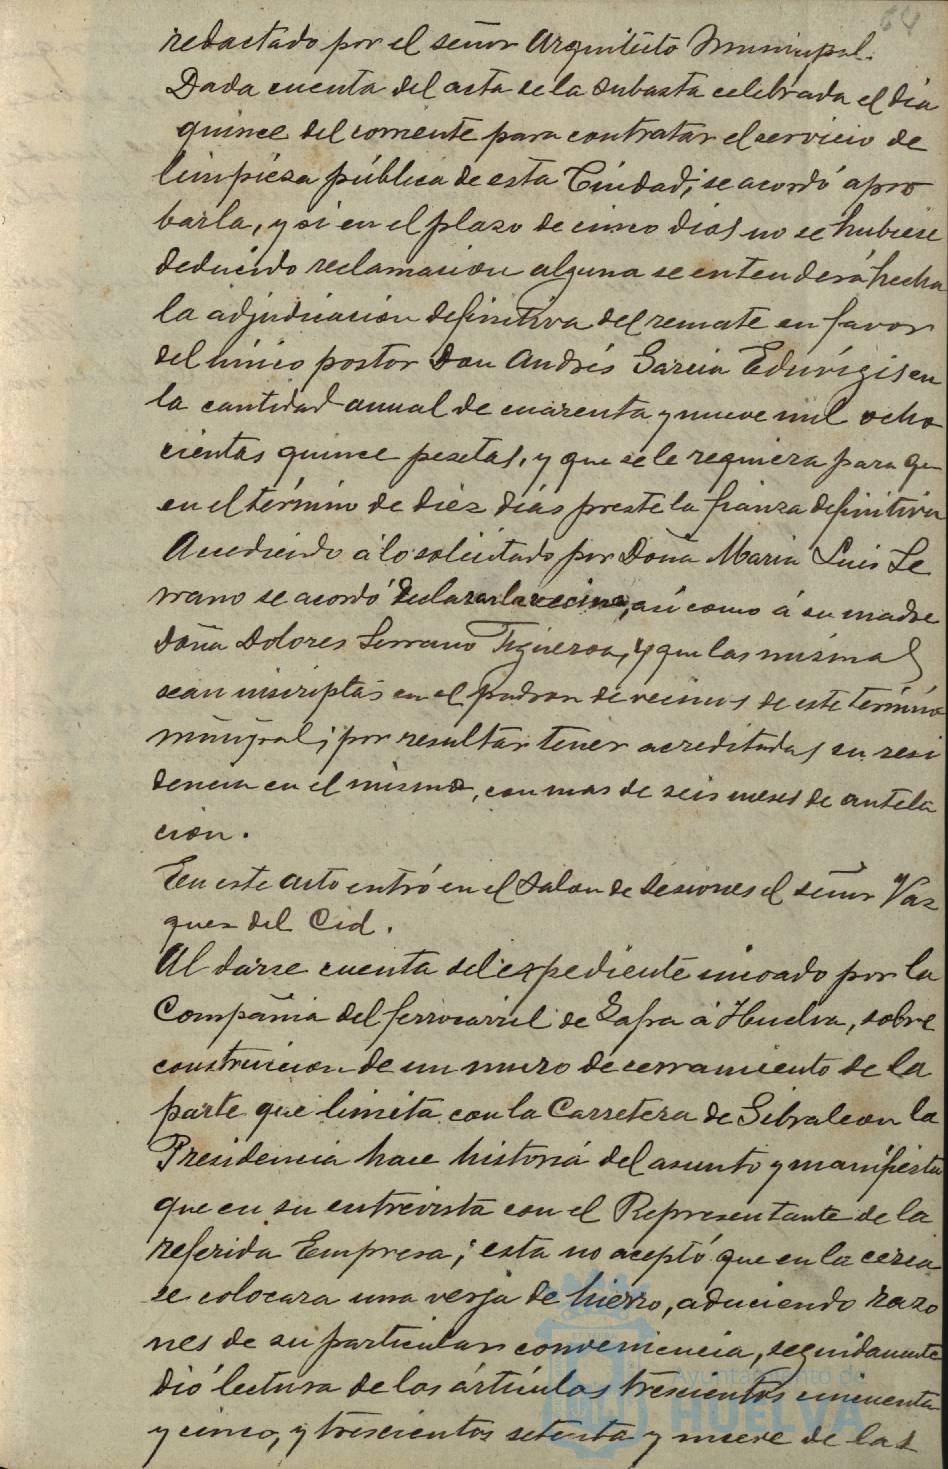 64
redactado por el señor Arquitecto Municipal.
Dada cuenta del acta de la subasta celebrada el dia
quince del corriente para contratar el servicio de
limpieza pública de esta Ciudad; se acordó apro
barla, y si en el plazo de cinco dias no se hubiese
deducido reclamacion alguna se entenderá hecha
la adjudicacion definitiva del remate en favor
del único postor Don Andrés Garcia Eduvigis en
la cantidad anual de cuarenta y nueve mil ocho
cientas quince pesetas, y que se le requiera para que
en el término de diez dias preste la fianza definitiva
Accediendo á lo solicitado por Doña Maria Luis Se
rrano se acordó declararla vecina, así como á su madre
Doña Dolores Serrano Figueroa, y que las mismas
sean inscriptas en el padron de vecinos de este término
municipal; por resultar tener acreditadas su resi
dencia en el mismo, con mas de seis meses de antela
cion.
En este acto entró en el Salon de Sesiones el señor Vaz
quez del Cid.
Al darse cuenta del expediente incoado por la
Compañia del ferrocarril de Zafra á Huelva, sobre
construccion de un muro de cerramiento de la
parte que limita con la Carretera de Gibraleon la
Presidencia hace historia del asunto y manifiesta
que en su entrevista con el Representante de la
referida Empresa; esta no aceptó que en la cerca
se colocara una verja de hierro, aduciendo razo
nes de su particular conveniencia, seguidamente
dió lectura de los artículos trescientos cincuenta
y cinco, y trescientos setenta y nueve de las
Ayuntamiento de
HUELVA